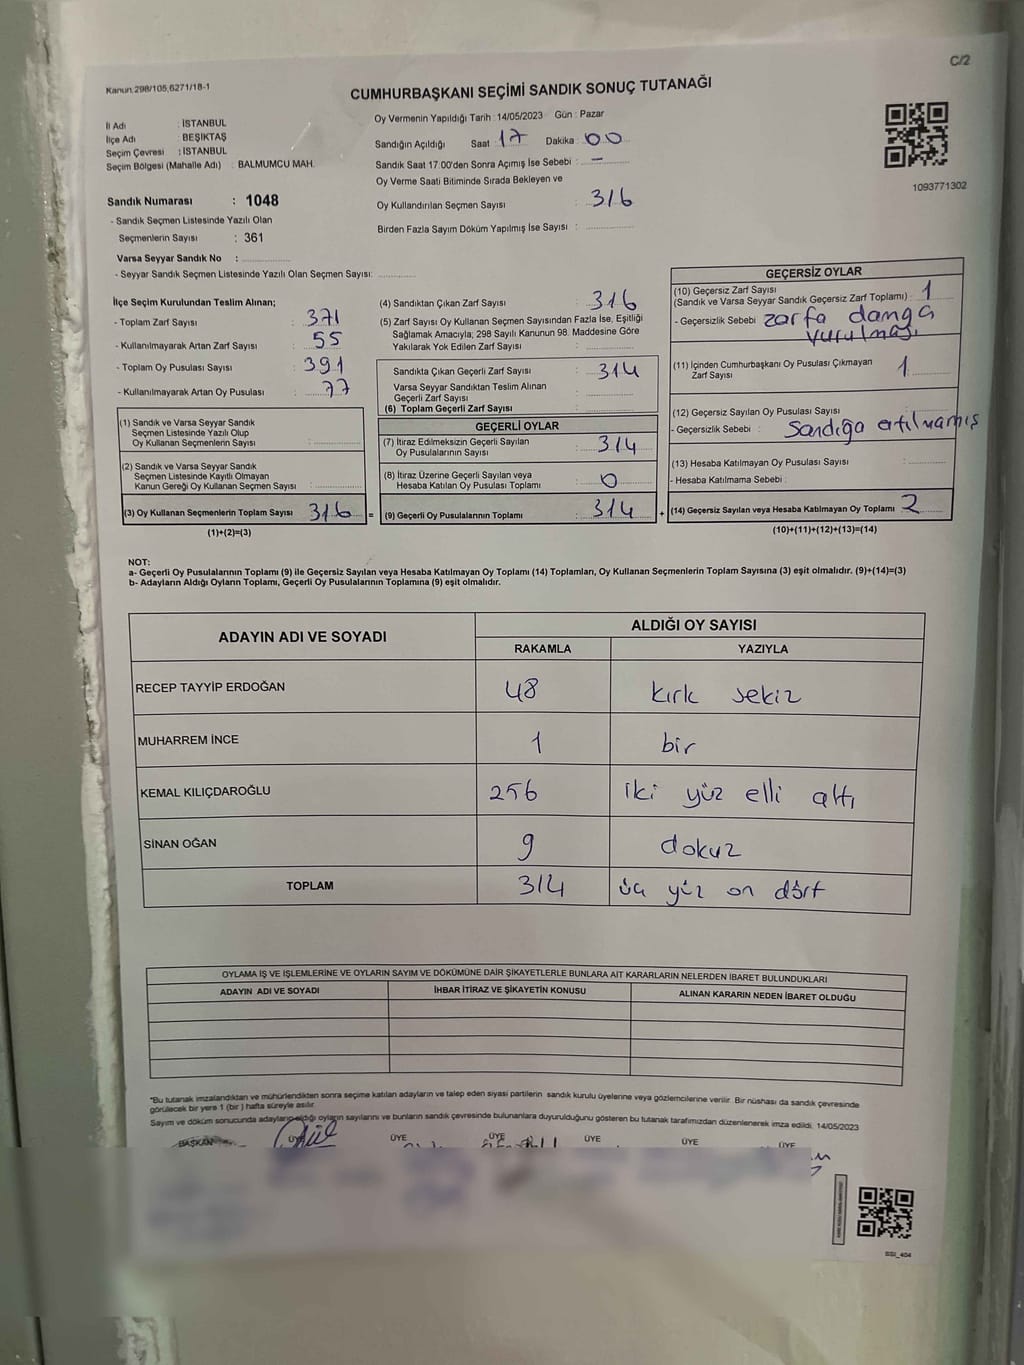 C/2
Kanun:298/105,6271/18-1
CUMHURBAŞKANI SEÇİMİ SANDIK SONUÇ TUTANAĞI
İl Adı : İSTANBUL
İlçe Adı : BEŞİKTAŞ
Seçim Çevresi : İSTANBUL
Seçim Bölgesi (Mahalle Adı) : BALMUMCU MAH.
Oy Vermenin Yapıldığı Tarih : 14/05/2023 Gün : Pazar
Sandığın Açıldığı Saat : 17 Dakika : 00
Sandık Saat 17:00'den Sonra Açımış İse Sebebi : —
Oy Verme Saati Bitiminde Sırada Bekleyen ve
Oy Kullandırılan Seçmen Sayısı : 316
Birden Fazla Sayım Döküm Yapılmış İse Sayısı :
1093771302
Sandık Numarası : 1048
- Sandık Seçmen Listesinde Yazılı Olan
Seçmenlerin Sayısı : 361
Varsa Seyyar Sandık No :
- Seyyar Sandık Seçmen Listesinde Yazılı Olan Seçmen Sayısı:
İlçe Seçim Kurulundan Teslim Alınan;
- Toplam Zarf Sayısı : 371
- Kullanılmayarak Artan Zarf Sayısı : 55
- Toplam Oy Pusulası Sayısı : 391
- Kullanılmayarak Artan Oy Pusulası : 77
(1) Sandık ve Varsa Seyyar Sandık
Seçmen Listesinde Yazılı Olup
Oy Kullanan Seçmenlerin Sayısı :
(2) Sandık ve Varsa Seyyar Sandık
Seçmen Listesinde Kayıtlı Olmayan
Kanun Gereği Oy Kullanan Seçmen Sayısı :
(3) Oy Kullanan Seçmenlerin Toplam Sayısı 316 =
(1)+(2)=(3)
(4) Sandıktan Çıkan Zarf Sayısı : 316
(5) Zarf Sayısı Oy Kullanan Seçmen Sayısından Fazla İse, Eşitliği
Sağlamak Amacıyla; 298 Sayılı Kanunun 98. Maddesine Göre
Yakılarak Yok Edilen Zarf Sayısı :
Sandıkta Çıkan Geçerli Zarf Sayısı : 314
Varsa Seyyar Sandıktan Teslim Alınan
Geçerli Zarf Sayısı :
(6) Toplam Geçerli Zarf Sayısı :
GEÇERLİ OYLAR
(7) İtiraz Edilmeksizin Geçerli Sayılan
Oy Pusulalarının Sayısı : 314
(8) İtiraz Üzerine Geçerli Sayılan veya
Hesaba Katılan Oy Pusulası Toplamı : 0
(9) Geçerli Oy Pusulalarının Toplamı : 314 +
GEÇERSİZ OYLAR
(10) Geçersiz Zarf Sayısı
(Sandık ve Varsa Seyyar Sandık Geçersiz Zarf Toplamı) : 1
- Geçersizlik Sebebi : zarfa damga
vurulması
(11) İçinden Cumhurbaşkanı Oy Pusulası Çıkmayan
Zarf Sayısı : 1
(12) Geçersiz Sayılan Oy Pusulası Sayısı :
- Geçersizlik Sebebi : Sandığa atılmamış
(13) Hesaba Katılmayan Oy Pusulası Sayısı :
- Hesaba Katılmama Sebebi :
(14) Geçersiz Sayılan veya Hesaba Katılmayan Oy Toplamı 2
(10)+(11)+(12)+(13)=(14)
NOT:
a- Geçerli Oy Pusulalarının Toplamı (9) ile Geçersiz Sayılan veya Hesaba Katılmayan Oy Toplamı (14) Toplamları, Oy Kullanan Seçmenlerin Toplam Sayısına (3) eşit olmalıdır. (9)+(14)=(3)
b- Adayların Aldığı Oyların Toplamı, Geçerli Oy Pusulalarının Toplamına (9) eşit olmalıdır.
ADAYIN ADI VE SOYADI
ALDIĞI OY SAYISI
RAKAMLA YAZIYLA
RECEP TAYYİP ERDOĞAN 48 kırk sekiz
MUHARREM İNCE 1 bir
KEMAL KILIÇDAROĞLU 256 iki yüz elli altı
SİNAN OĞAN 9 dokuz
TOPLAM 314 üç yüz on dört
OYLAMA İŞ VE İŞLEMLERİNE VE OYLARIN SAYIM VE DÖKÜMÜNE DAİR ŞİKAYETLERLE BUNLARA AİT KARARLARIN NELERDEN İBARET BULUNDUKLARI
ADAYIN ADI VE SOYADI İHBAR İTİRAZ VE ŞİKAYETİN KONUSU ALINAN KARARIN NEDEN İBARET OLDUĞU
"Bu tutanak imzalandıktan ve mühürlendikten sonra seçime katılan adayların ve talep eden siyasi partilerin sandık kurulu üyelerine veya gözlemcilerine verilir. Bir nüshası da sandık çevresinde
görülecek bir yere 1 (bir) hafta süreyle asılır.
Sayım ve döküm sonucunda adayların aldığı oyların sayılarını ve bunların sandık çevresinde bulunanlara duyurulduğunu gösteren bu tutanak tarafımızdan düzenlenerek imza edildi. 14/05/2023
BAŞKAN ÜYE ÜYE ÜYE ÜYE ÜYE ÜYE
SSI_404